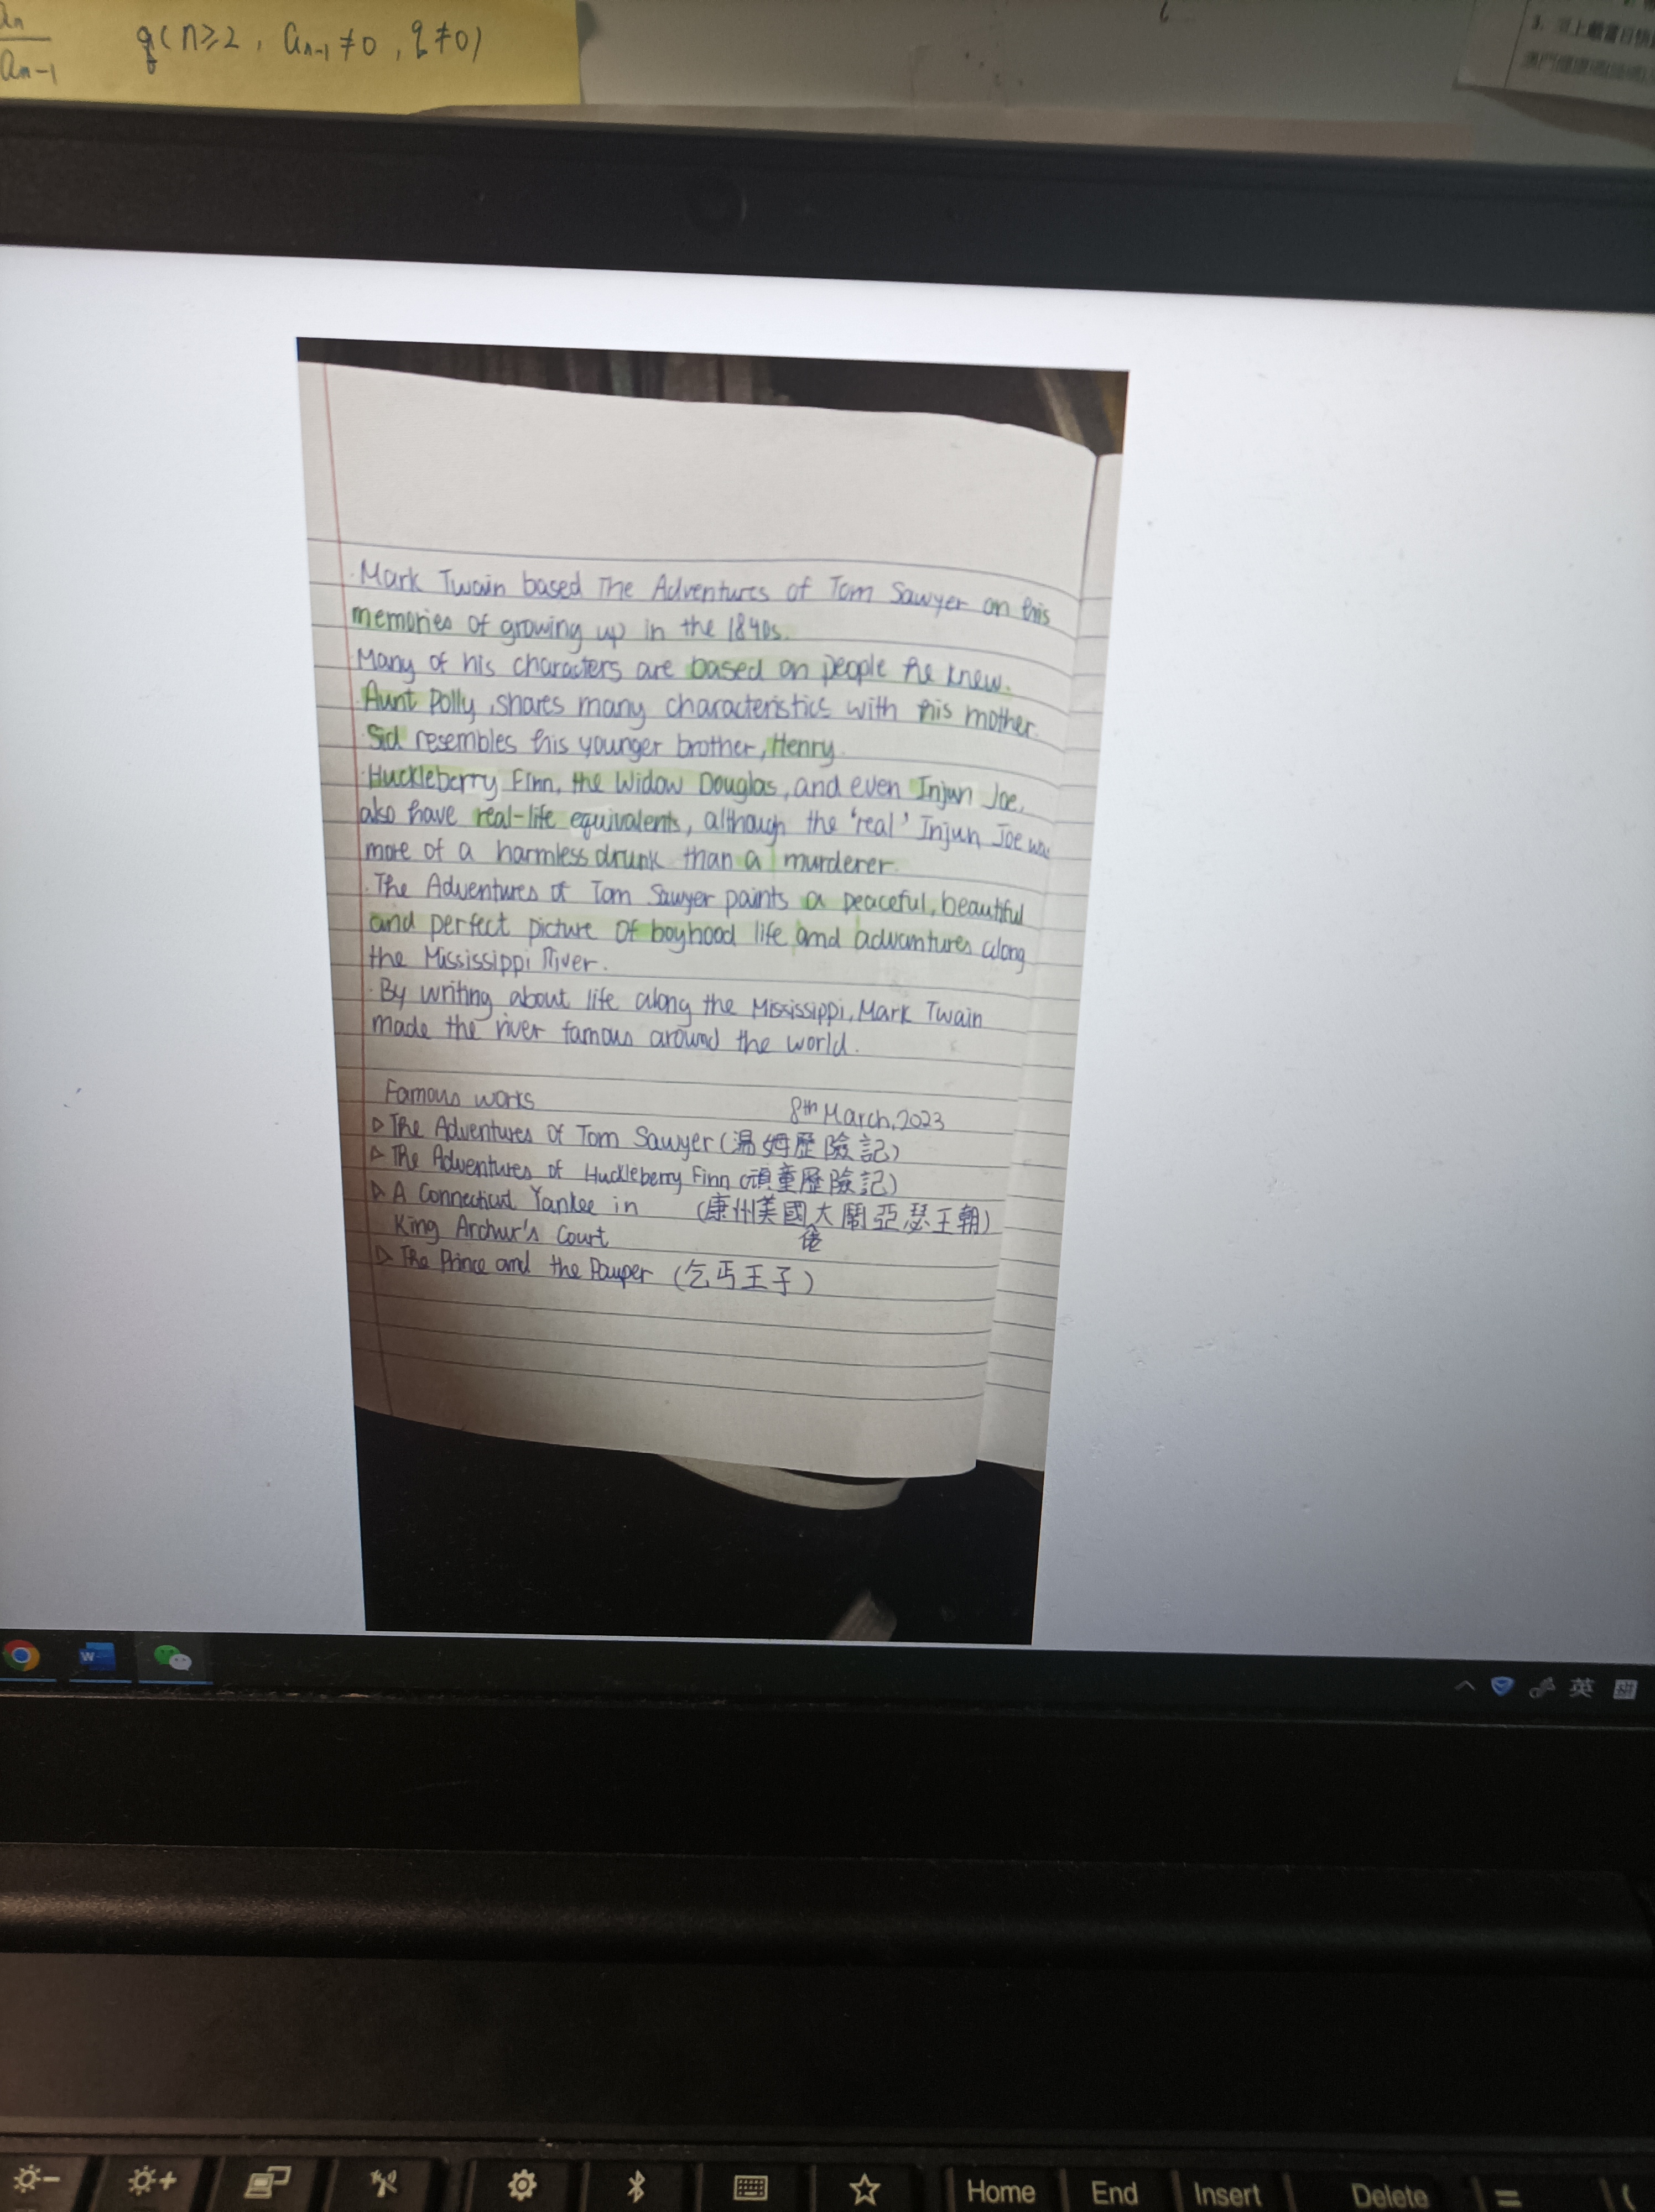 an
an-1
q(n≥2, an-1≠0, q≠0)
·Mark Twain based The Adventures of Tom Sawyer on his
memories of growing up in the 1840s.
Many of his characters are based on people he knew.
·Aunt Polly, shares many characteristics with his mother.
·Sid resembles his younger brother, Henry.
·Huckleberry Finn, the Widow Douglas, and even Injun Joe,
also have real-life equivalents, although the 'real' Injun Joe was
more of a harmless drunk than a murderer.
·The Adventures of Tom Sawyer paints a peaceful, beautiful
and perfect picture of boyhood life and advantures along
the Mississippi River.
·By writing about life along the Mississippi, Mark Twain
made the river famous around the world.
Famous works
8th March, 2023
▷The Adventures of Tom Sawyer (湯姆歷險記)
▷The Adventures of Huckleberry Finn (頑童歷險記)
▷A Connecticut Yankee in (康州美國佬大鬧亞瑟王朝)
King Archur's Court
▷The Prince and the Pauper (乞丐王子)
W
英
Home
End
Insert
Delete
=